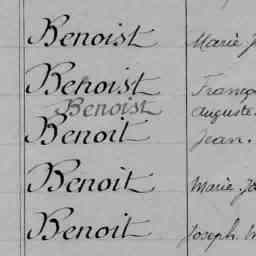 Benoist Marie J
Benoist Franç
Benoist Auguste
Benoit Jean.
Benoit Marie. Jo
Benoit Joseph